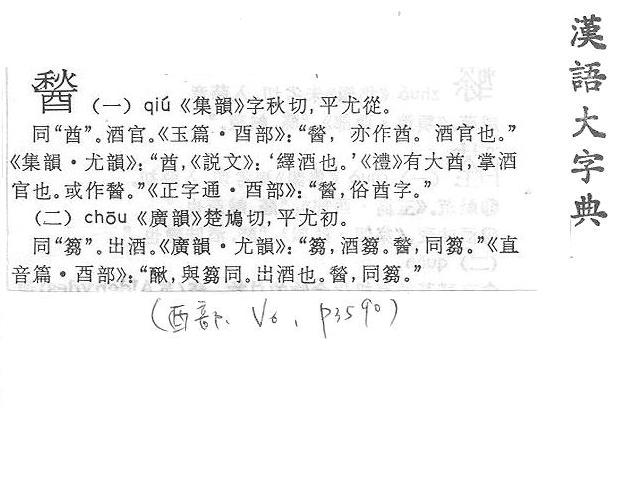 漢語大字典
(一) qiú《集韻》字秋切,平尤從。
同“酋”。酒官。《玉篇·酉部》:“, 亦作酋。酒官也。”
《集韻·尤韻》:“酋,《説文》:‘繹酒也。’《禮》有大酋,掌酒
官也。或作。”《正字通·酉部》:“,俗酋字。”
(二) chōu《廣韻》楚鳩切,平尤初。
同“篘”。出酒。《廣韻·尤韻》:“篘,酒篘。,同篘。”《直
音篇·酉部》:“,與篘同。出酒也。,同篘。”
(酉部、V6, p3590)